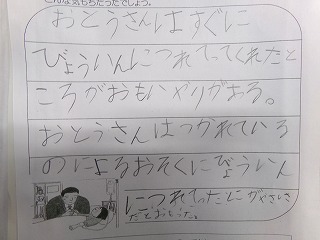 こんな気もちだったでしょう。
おとうさんはすぐに
びょういんにつれてってくれたと
ころがおもいやりがある。
おとうさんはつかれている
のによるおそくにびょういん
につれてったにがやさしさ
だとおもうた。